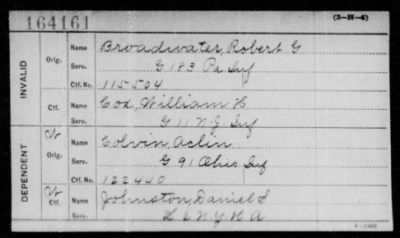 164161
(3-H-4)
INVALID
Orig. Name Broadwater, Robert G
Serv. G 183 Pa Inf
Ctf. No. 115504
Ctf. Name Cox, William H
Serv. G 11 N.J. Inf
DEPENDENT
Orig. Name Colvin, Aclin
Serv. G 91 Ohio Inf
Ctf. No. 122440
Ctf. Name Johnston, Daniel L
Serv. L 6 N.Y. H A